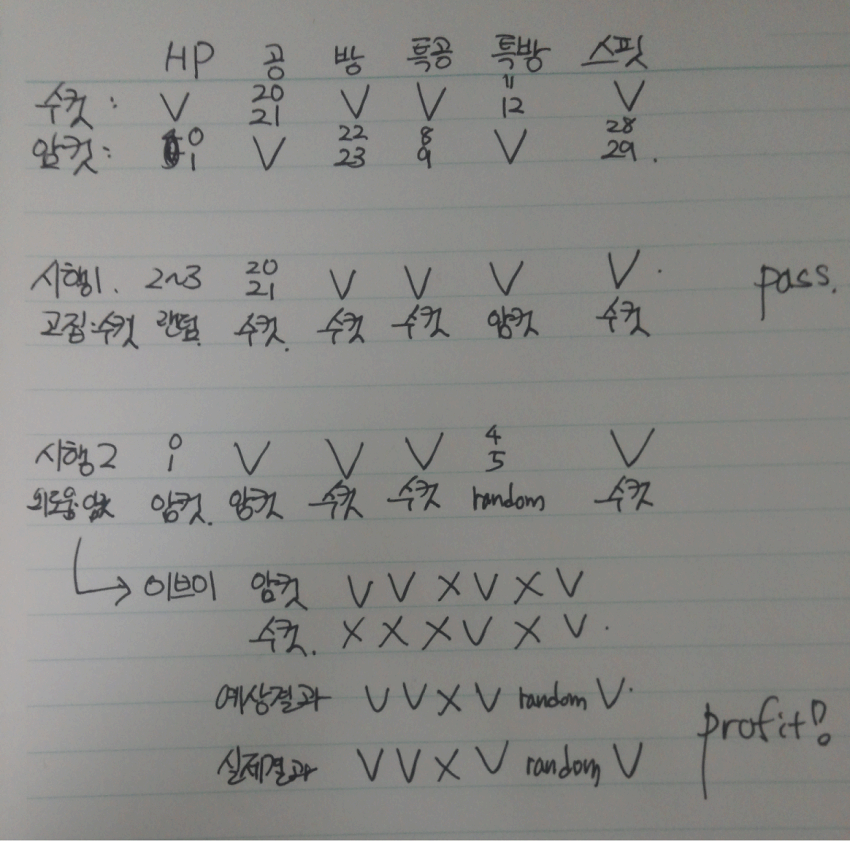 HP 공 방 특공 특방 스핏
수컷 : V 20 21 V V 11 12 V
암컷 : 0 1 V 22 23 8 9 V 28 29 .
시행1. 2~3 20 21 V V V V . pass.
고집:수컷 랜덤. 수컷. 수컷 수컷 암컷 수컷
시행2 0 1 V V V 4 5 V
외로움: 암컷. 암컷 수컷 수컷 random 수컷
이브이 암컷 V V X V X V
수컷. X X X V X V .
예상결과 V V X V random V. profit!
실제결과 V V X V random V